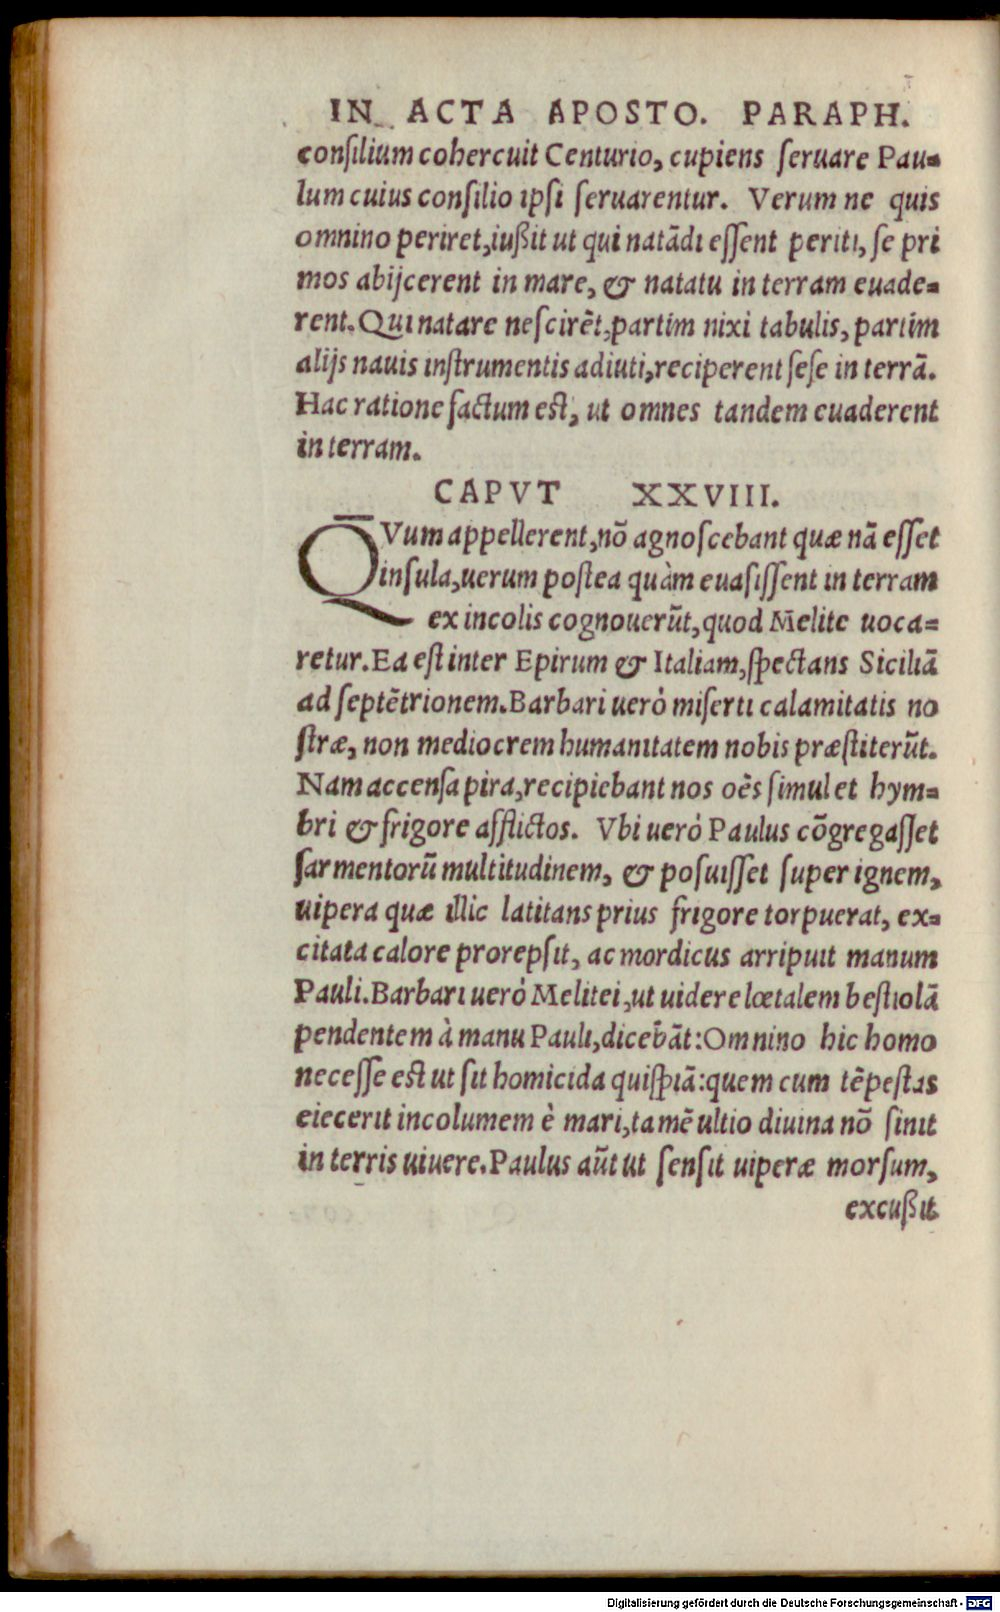 IN ACTA APOSTO. PARAPH.
consilium cohercuit Centurio, cupiens seruare Pau-
lum cuius consilio ipsi seruarentur. Verum ne quis
omnino periret, iußit ut qui natādi essent periti, se pri
mos abijcerent in mare, & natatu in terram euade-
rent. Qui natare nescirēt, partim nixi tabulis, partim
alijs nauis instrumentis adiuti, reciperent sese in terrā.
Hac ratione factum est, ut omnes tandem euaderent
in terram.
CAPVT XXVIII.
QVum appellerent, nō agnoscebant quæ nā esset
insula, uerum postea quàm euasissent in terram
ex incolis cognouerūt, quod Melite uoca=
retur. Ea est inter Epirum & Italiam, spectans Siciliā
ad septētrionem. Barbari uerò miserti calamitatis no
stræ, non mediocrem humanitatem nobis præstiterūt.
Nam accensa pira, recipiebant nos oēs simul et hym-
bri & frigore afflictos. Vbi uerò Paulus cōgregasset
sarmentorū multitudinem, & posuisset super ignem,
uipera quæ illic latitans prius frigore torpuerat, ex-
citata calore prorepsit, ac mordicus arripuit manum
Pauli. Barbari uerò Melitei, ut uidere lœtalem bestiolā
pendentem à manu Pauli, dicebāt: Omnino hic homo
necesse est ut sit homicida quispiā: quem cum tēpestas
eiecerit incolumem è mari, tamē ultio diuina nō sinit
in terris uiuere. Paulus aūt ut sensit uiperæ morsum,
excußit
Digitalisierung gefördert durch die Deutsche Forschungsgemeinschaft - DFG